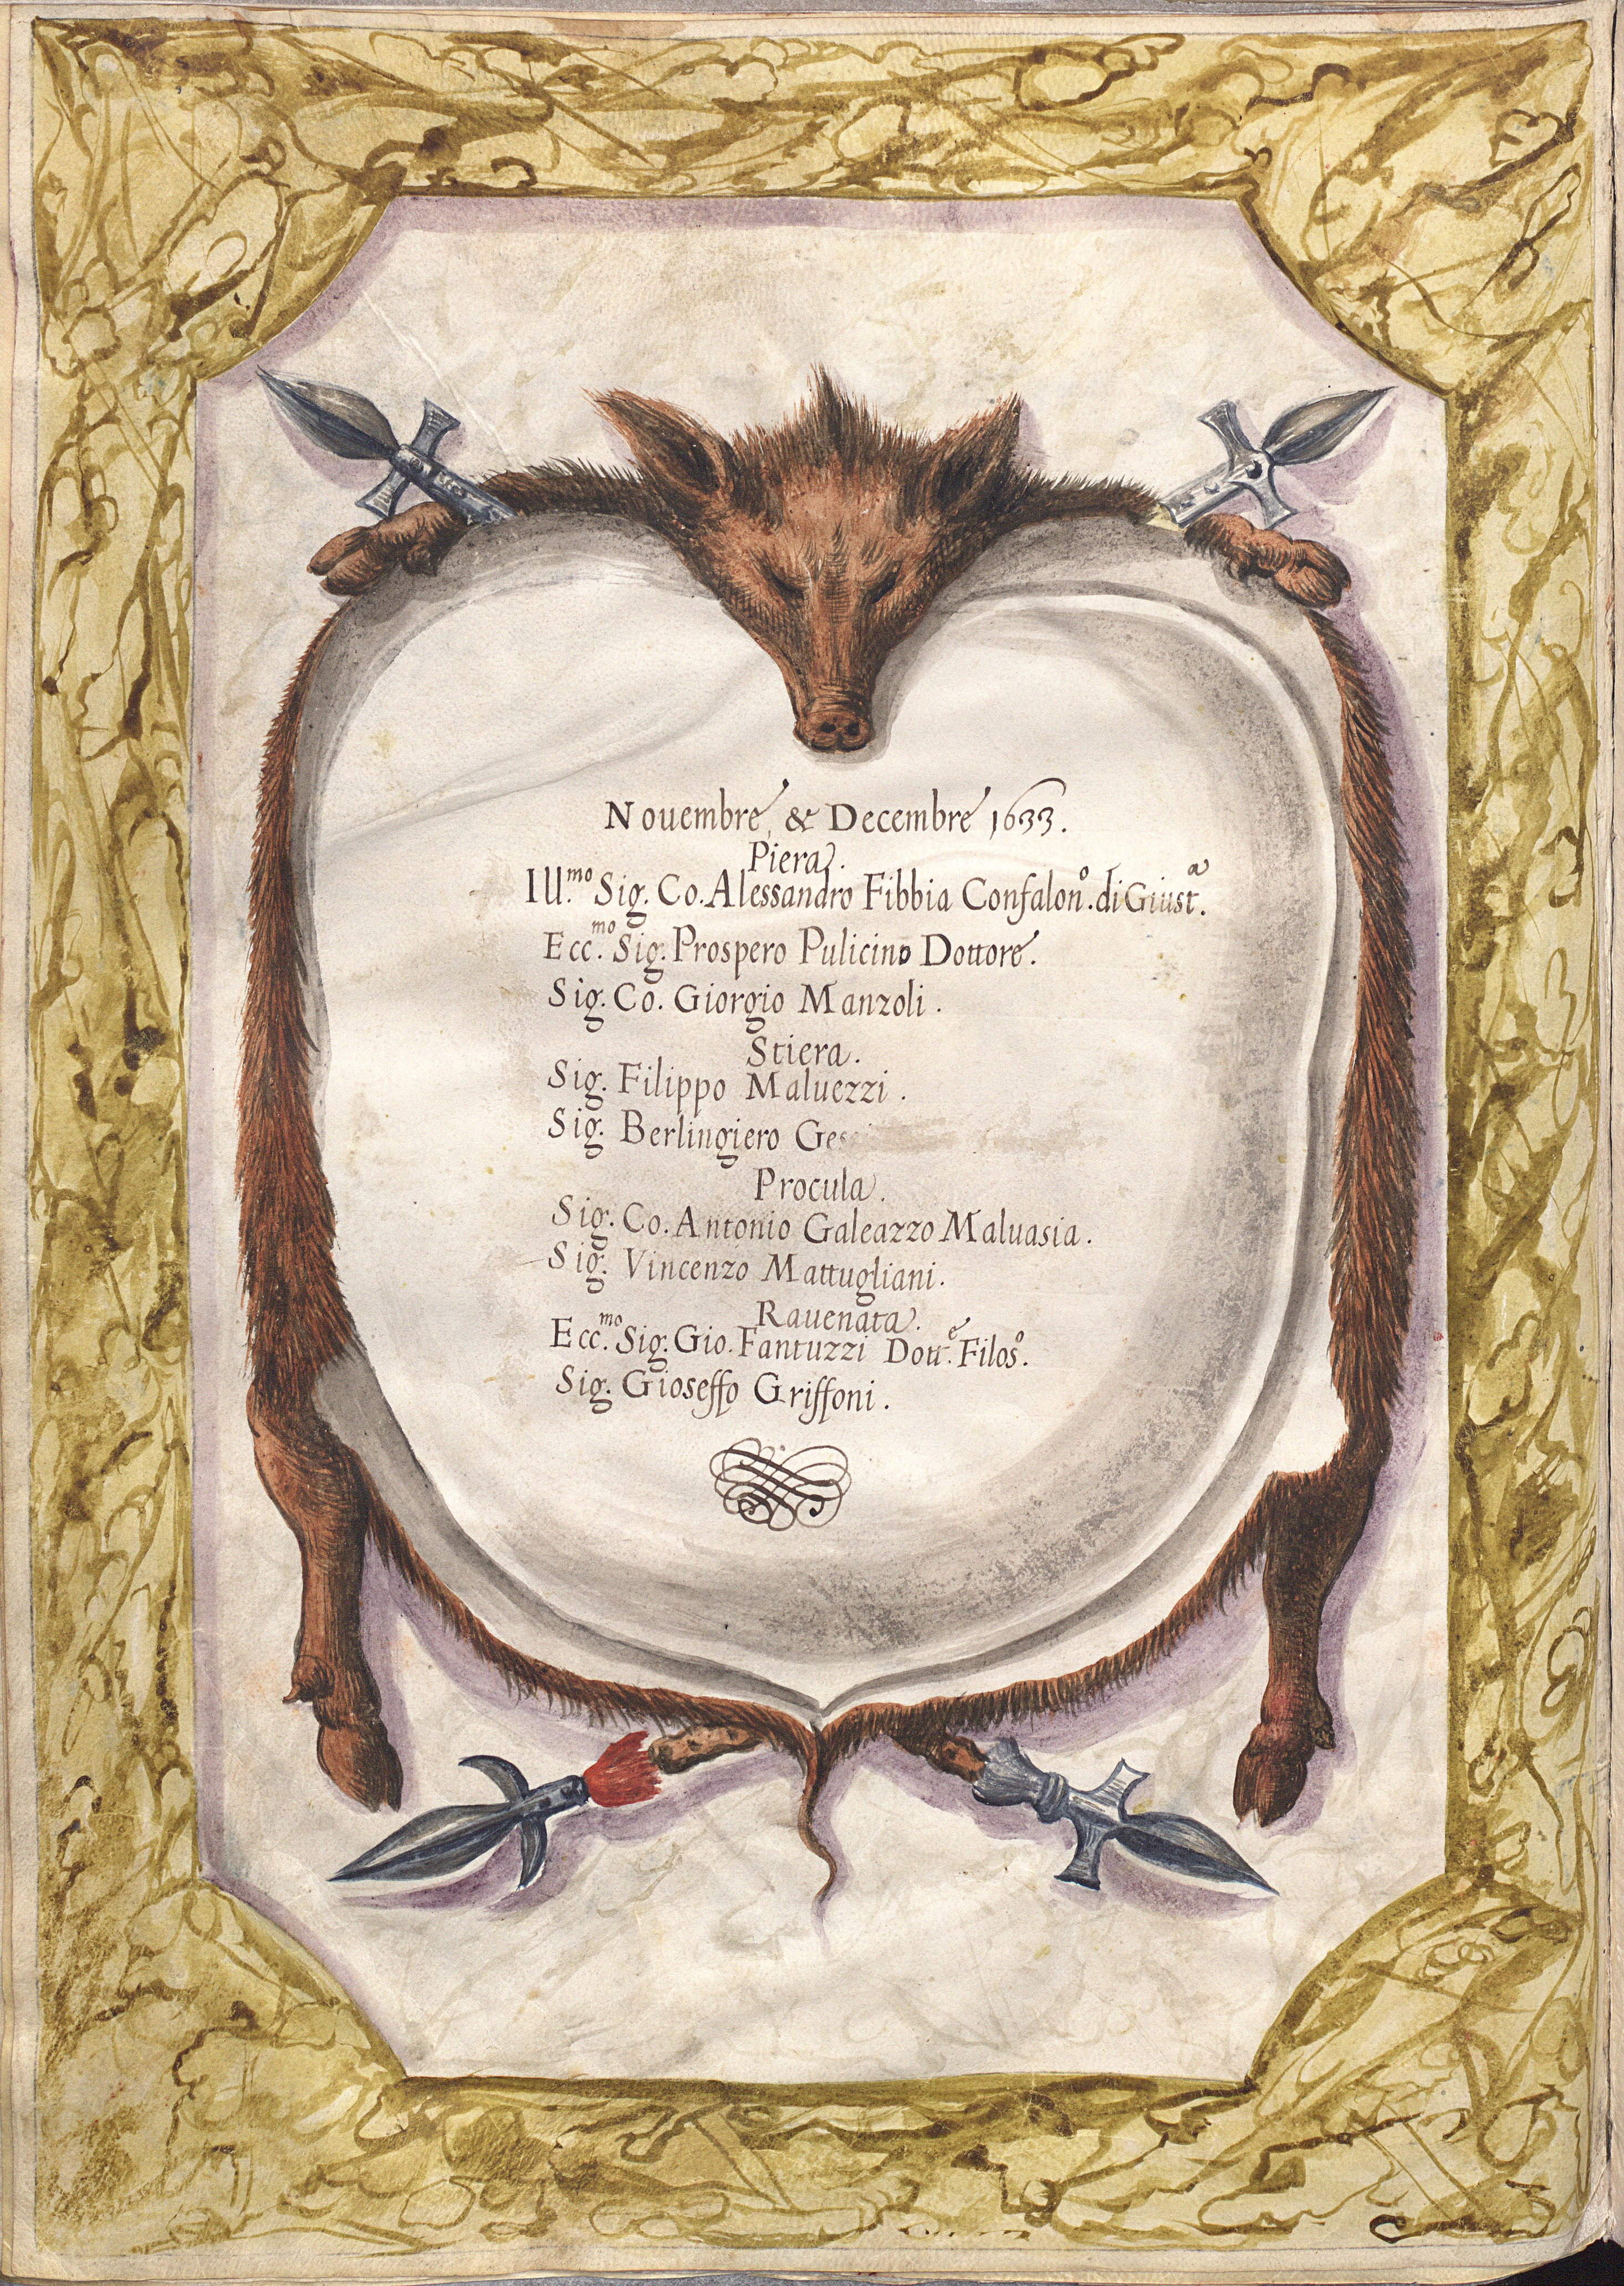 Nouembre, & Decembre 1633.
Piera.
Ill.mo Sig. Co. Alessandro Fibbia Confalon.o di Giust.a
Ecc.mo Sig. Prospero Pulicino Dottore.
Sig. Co. Giorgio Manzoli.
Stiera.
Sig. Filippo Maluezzi.
Sig. Berlingiero
Procula.
Sig. Co. Antonio Galeazzo Maluasia.
Sig. Vincenzo Mattugliani.
Rauenata.
Ecc.mo Sig. Gio. Fantuzzi Dott.e Filos.o
Sig. Gioseffo Griffoni.